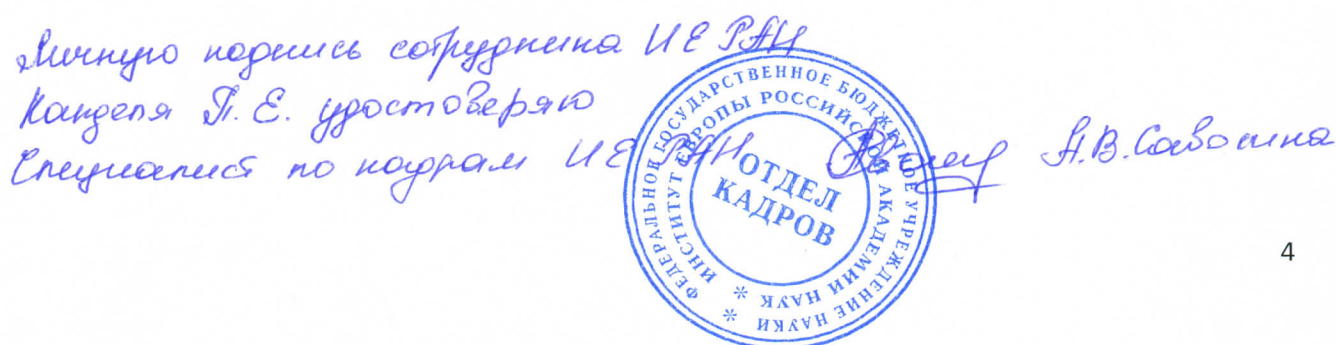 Личную подпись сотрудника ИЕ РАН
Канделя П. Е. удостоверяю
Специалист по кадрам ИЕ РАН А.В. Савосина
ФЕДЕРАЛЬНОЕ ГОСУДАРСТВЕННОЕ БЮДЖЕТНОЕ УЧРЕЖДЕНИЕ НАУКИ *
ИНСТИТУТ ЕВРОПЫ РОССИЙСКОЙ АКАДЕМИИ НАУК *
ОТДЕЛ
КАДРОВ
4